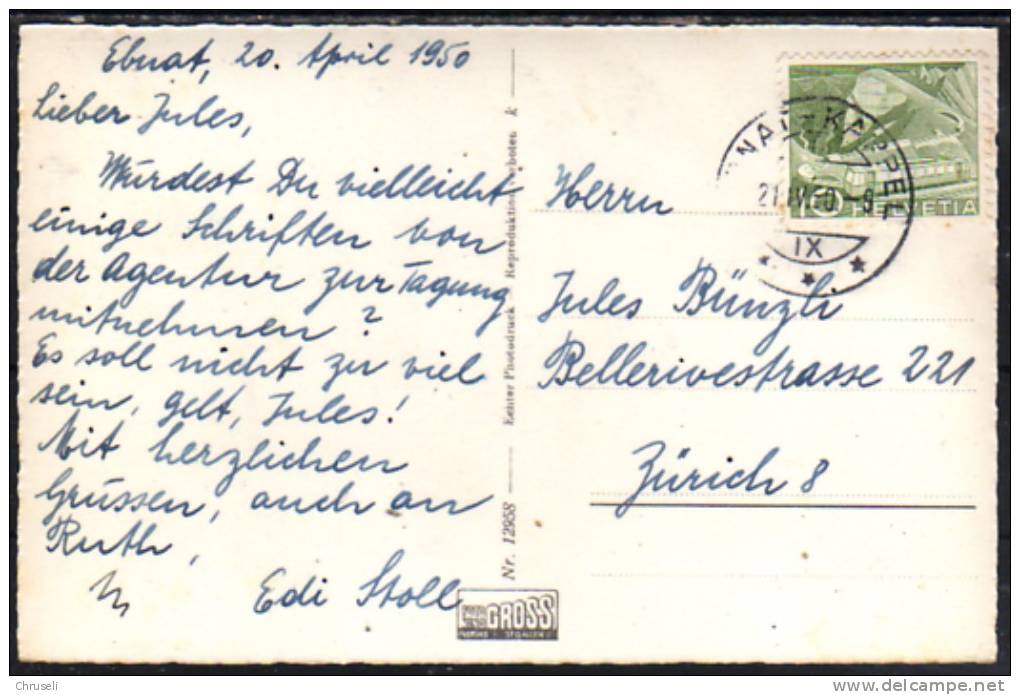 Ebnat, 20. April 1950
Lieber Jules,
Würdest Du vielleicht
einige Schriften von
der Agentur zur Tagung
mitnehmen?
Es soll nicht zu viel
sein, gelt, Jules!
Mit herzlichen
Grüssen, auch an
Ruth,
Edi Stoll
Nr. 12958 Echter Photodruck - Reproduktion verboten k
GROSS
NAT-KAPPEL
21.IV.50.-9
IX
10 HELVETIA
Herrn
Jules Bünzli
Bellerivestrasse 221
Zürich 8
Chruseli
delcampe.net